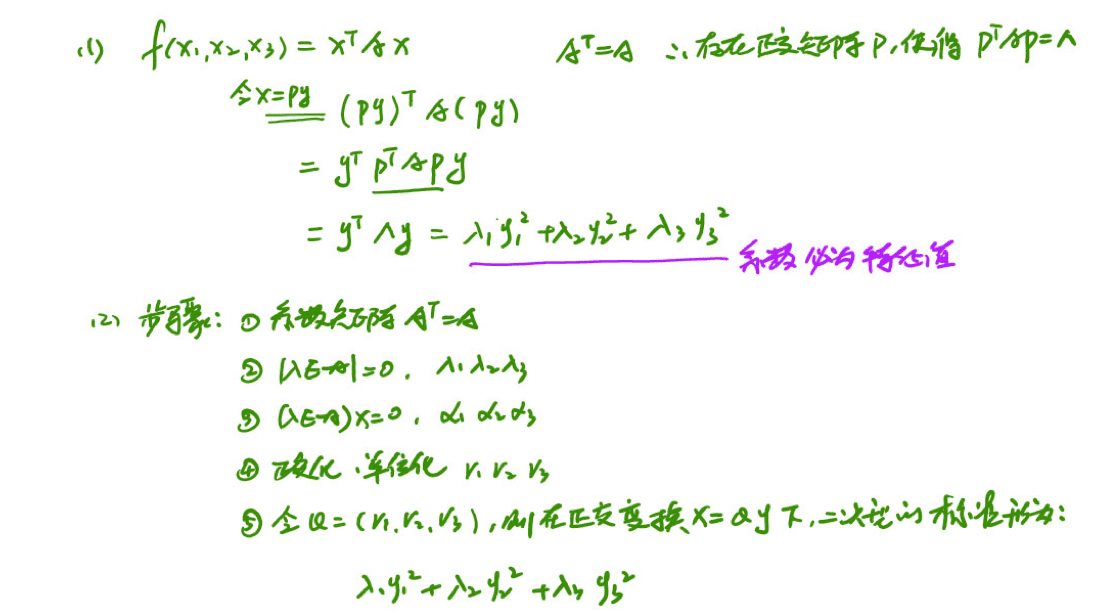 (1) f(x₁,x₂,x₃) = xᵀAx  Aᵀ=A ∴存在正交矩阵P,使得 PᵀAP=Λ
令x=Py (Py)ᵀA(Py)
= yᵀPᵀAPy
= yᵀΛy = λ₁y₁²+λ₂y₂²+λ₃y₃²
系数必为特征值
(2) 步骤: ① 系数矩阵 Aᵀ=A
② |λE-A|=0, λ₁λ₂λ₃
③ (λE-A)x=0, α₁ α₂ α₃
④ 正交化、单位化 r₁ r₂ r₃
⑤ 令Q=(r₁,r₂,r₃),则在正交变换x=Qy下,二次型的标准形为:
λ₁y₁²+λ₂y₂²+λ₃y₃²